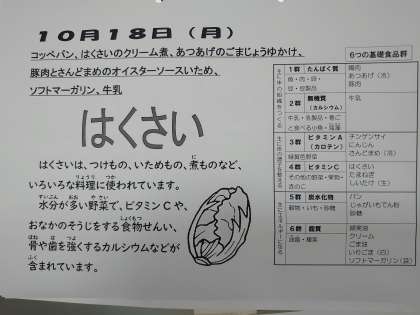 10月18日（月）
コッペパン、はくさいのクリーム煮、あつあげのごまじょうゆかけ、
豚肉とさんどまめのオイスターソースいため、
ソフトマーガリン、牛乳
はくさい
はくさいは、つけもの、いためもの、煮ものなど、
いろいろな料理に使われています。
水分が多い野菜で、ビタミンCや、
おなかのそうじをする食物せんい、
骨や歯を強くするカルシウムなどが
含まれています。
6つの基礎食品群
1群 たんぱく質
魚・肉・卵・
豆・豆製品
鶏肉
あつあげ（冷）
豚肉
2群 無機質
（カルシウム）
牛乳・乳製品・骨ご
と食べる小魚・海藻
牛乳
3群 ビタミンA
（カロテン）
緑黄色野菜
チンゲンサイ
にんじん
さんどまめ（冷）
4群 ビタミンC
その他の野菜・果物・
きのこ
はくさい
たまねぎ
しいたけ（生）
5群 炭水化物
穀物・いも・砂糖
パン
じゃがいもでん粉
砂糖
6群 脂質
油脂・種実
綿実油
クリーム
ごま油
いりごま（白）
ソフトマーガリン（袋）